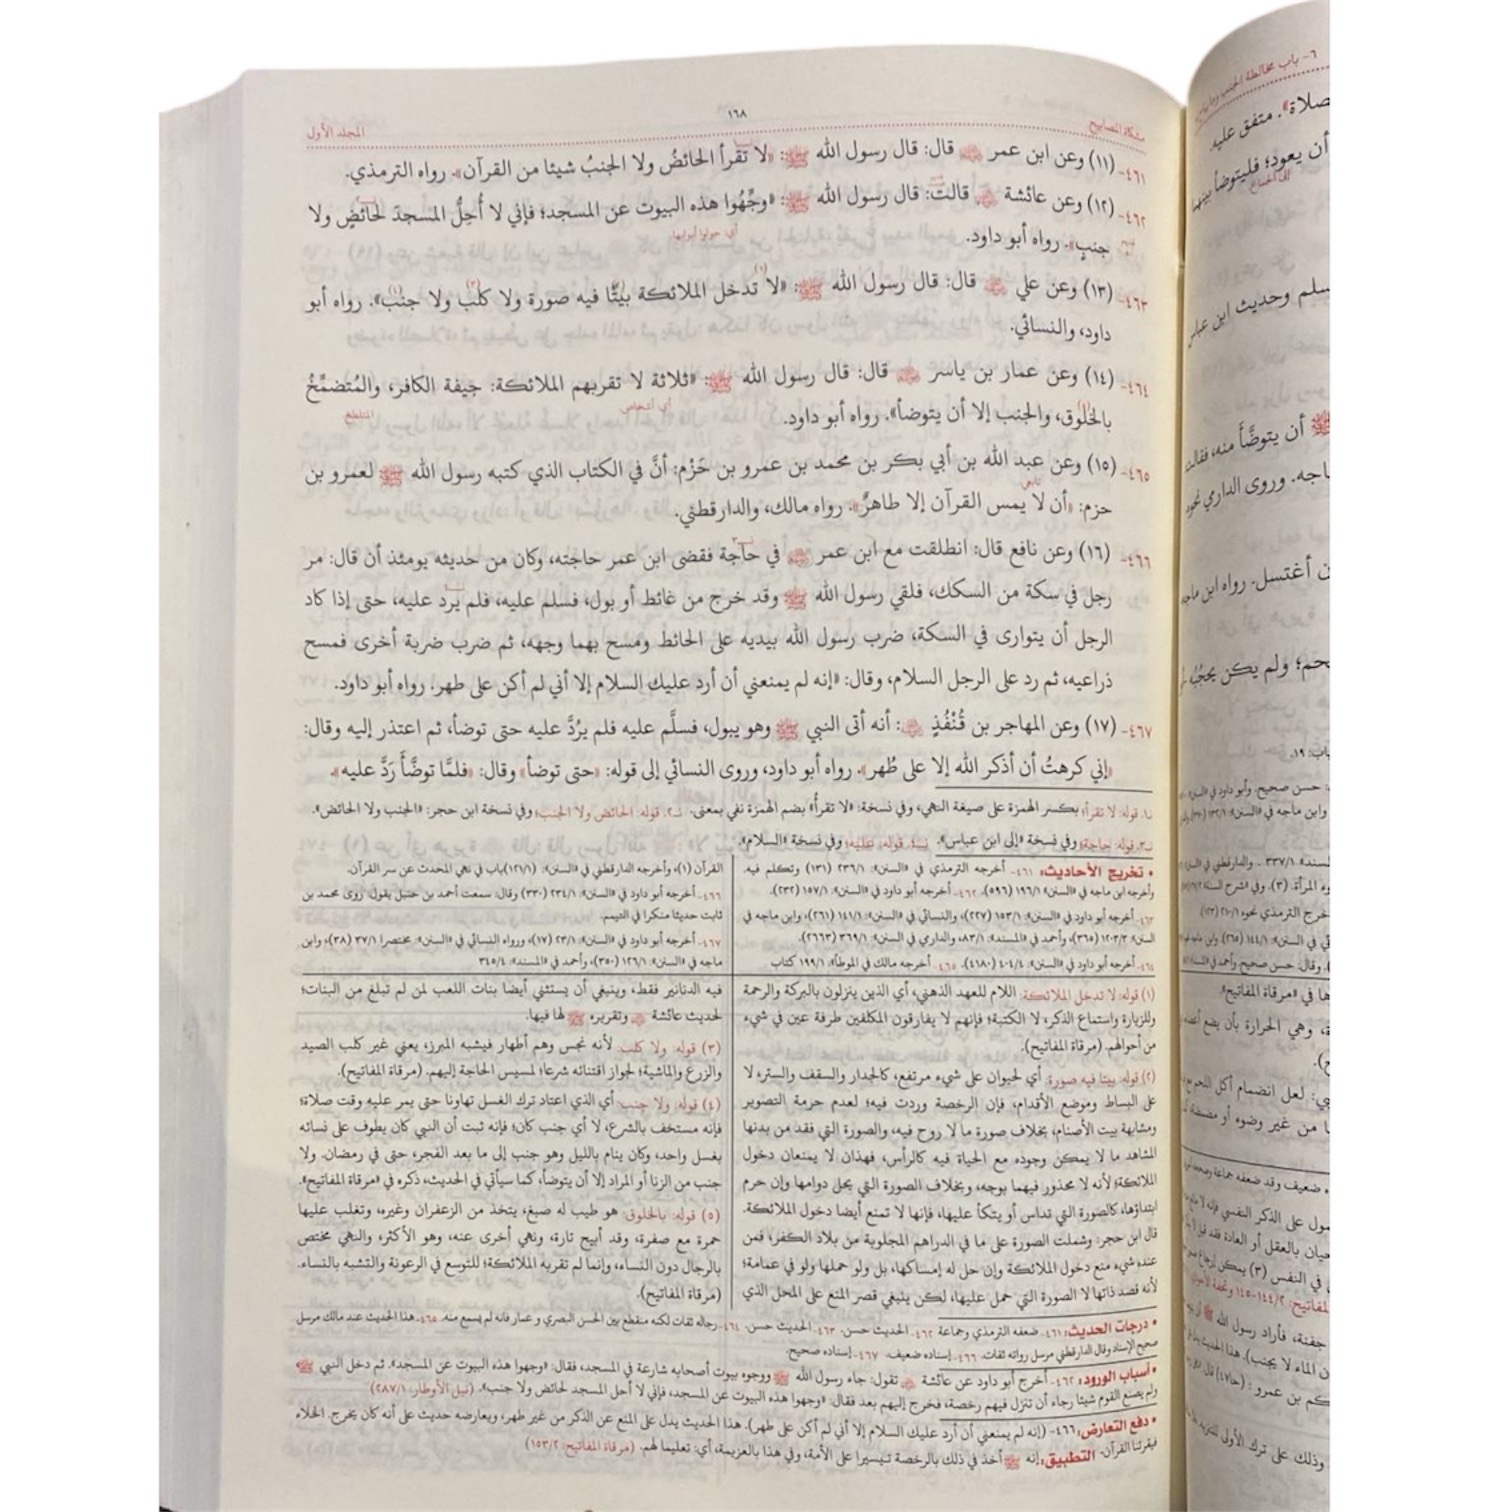 مشكاة المصابيح
١٦٨
المجلد الأول
٤٦١- (١١) وعن ابن عمر ﷺ قال: قال رسول الله ﷺ: «لا تقرأ الحائضُ ولا الجنبُ شيئا من القرآن». رواه الترمذي.
٤٦٢- (١٢) وعن عائشة قالت: قال رسول الله ﷺ: «وجِّهُوا هذه البيوت عن المسجد؛ فإني لا أُحِلُّ المسجدَ لحائضٍ ولا
أي حولوا أبوابها
جنبٍ». رواه أبو داود.
٤٦٣- (١٣) وعن علي قال: قال رسول الله ﷺ: «لا تدخل الملائكة بيتًا فيه صورة ولا كلب ولا جنب». رواه أبو
داود، والنسائي.
٤٦٤- (١٤) وعن عمار بن ياسر قال: قال رسول الله ﷺ: «ثلاثة لا تقربهم الملائكة: جيفة الكافر، والمُتضمِّخُ
أي أشخاص
المتلطخ
بالخَلُوق، والجنب إلا أن يتوضأ». رواه أبو داود.
٤٦٥- (١٥) وعن عبد الله بن أبي بكر بن محمد بن عمرو بن حَزْم: أنَّ في الكتاب الذي كتبه رسول الله ﷺ لعمرو بن
تابعي
حزم: «أن لا يمس القرآن إلا طاهرٌ». رواه مالك، والدارقطني.
٤٦٦- (١٦) وعن نافع قال: انطلقت مع ابن عمر في حاجة فقضى ابن عمر حاجته، وكان من حديثه يومئذ أن قال: مر
رجل في سكة من السكك، فلقي رسول الله ﷺ وقد خرج من غائط أو بول، فسلم عليه، فلم يرد عليه، حتى إذا كاد
الرجل أن يتوارى في السكة، ضرب رسول الله بيديه على الحائط ومسح بهما وجهه، ثم ضرب ضربة أخرى فمسح
ذراعيه، ثم رد على الرجل السلام، وقال: «إنه لم يمنعني أن أرد عليك السلام إلا أني لم أكن على طهر. رواه أبو داود.
٤٦٧- (١٧) وعن المهاجر بن قُنْفُذٍ : أنه أتى النبي ﷺ وهو يبول، فسلَّم عليه فلم يرُدَّ عليه حتى توضأ، ثم اعتذر إليه وقال:
«إني كرهتُ أن أذكر الله إلا على طُهر». رواه أبو داود، وروى النسائي إلى قوله: «حتى توضأ» وقال: «فلمَّا توضَّأَ رَدَّ عليه».
نـ١. قوله: لا تقرأ؛ بكسر الهمزة على صيغة النهي، وفي نسخة: «لا تقرأُ» بضم الهمزة نفي بمعنى. نـ٢. قوله: الحائض ولا الجنب؛ وفي نسخة ابن حجر: «الجنب ولا الحائض».
نـ٣. قوله: حاجة؛ وفي نسخة «إلى ابن عباس». نـ٤. قوله: عليه؛ وفي نسخة «السلام».
• تخريج الأحاديث: ٤٦١- أخرجه الترمذي في «السنن»: ٢٣٦/١ (١٣١) وتكلم فيه.
وأخرجه ابن ماجه في «السنن»: ١٩٦/١ (٥٩٦). ٤٦٢- أخرجه أبو داود في «السنن»: ١٥٧/١ (٢٣٢).
٤٦٣- أخرجه أبو داود في «السنن»: ١٥٣/١ (٢٢٧)، والنسائي في «السنن»: ١٤١/١ (٢٦١)، وابن ماجه في
السنن: ١٢٠٣/٢ (٣٦٥)، وأحمد في «المسند»: ٨٣/١، والدارمي في السنن: ٣٦٩/١ (٢٦٦٣).
٤٦٤- أخرجه أبو داود في «السنن»: ٤٠٤/٤ (٤١٨٠). ٤٦٥- أخرجه مالك في الموطأ»: ١٩٩/١ كتاب
القرآن (١)، وأخرجه الدارقطني في «السنن»: (١٢١/١)باب في نهي المحدث عن سر القرآن.
٤٦٦- أخرجه أبو داود في «السنن»: ٢٣٤/١ (٣٣٠) وقال: سمعت أحمد بن حنبل يقول: روى محمد بن
ثابت حديثا منكرا في التيمم.
٤٦٧- أخرجه أبو داود في «السنن»: ٢٣/١ (١٧)، ورواه النسائي في «السنن»: مختصرا ٣٧/١ (٣٨)، وابن
ماجه في «السنن»: ١٢٦/١ (٣٥٠)، وأحمد في «المسند»: ٣٤٥/٤
(١) قوله: لا تدخل الملائكة: اللام للعهد الذهني، أي الذين ينزلون بالبركة والرحمة
وللزيارة واستماع الذكر، لا الكتبة؛ فإنهم لا يفارقون المكلفين طرفة عين في شيء
من أحوالهم. (مرقاة المفاتيح).
(٢) قوله: بيتا فيه صورة: أي لحيوان على شيء مرتفع، كالجدار والسقف والستر، لا
على البساط وموضع الأقدام، فإن الرخصة وردت فيه؛ لعدم حرمة التصوير
ومشابهة بيت الأصنام، بخلاف صورة ما لا روح فيه، والصورة التي فقد من بدنها
المشاهد ما لا يمكن وجوده مع الحياة فيه كالرأس، فهذان لا يمنعان دخول
الملائكة؛ لأنه لا محذور فيهما بوجه، وبخلاف الصورة التي يحل دوامها وإن حرم
ابتداؤها، كالصورة التي تداس أو يتكأ عليها، فإنها لا تمنع أيضا دخول الملائكة.
قال ابن حجر: وشملت الصورة على ما في الدراهم المجلوبة من بلاد الكفر، فمن
عنده شيء منع دخول الملائكة وإن حل له إمساكها، بل ولو حملها ولو في عمامة؛
لأنه قصد ذاتها لا الصورة التي حمل عليها، لكن ينبغي قصر المنع على المحل الذي
فيه الدنانير فقط، وينبغي أن يستثنى أيضا بنات اللعب لمن لم تبلغ من البنات؛
لحديث عائشة وتقريره ﷺ لها فيها.
(٣) قوله: ولا كلب: لأنه نجس وهم أطهار فيشبه المبرز، يعني غير كلب الصيد
والزرع والماشية؛ لجواز اقتنائه شرعا؛ لمسيس الحاجة إليهم. (مرقاة المفاتيح).
(٤) قوله: ولا جنب: أي الذي اعتاد ترك الغسل تهاونا حتى يمر عليه وقت صلاة؛
فإنه مستخف بالشرع، لا أي جنب كان؛ فإنه ثبت أن النبي كان يطوف على نسائه
بغسل واحد، وكان ينام بالليل وهو جنب إلى ما بعد الفجر، حتى في رمضان. ولا
جنب من الزنا أو المراد إلا أن يتوضأ، كما سيأتي في الحديث، ذكره في «مرقاة المفاتيح».
(٥) قوله: بالخلوق: هو طيب له صبغ، يتخذ من الزعفران وغيره، وتغلب عليها
حمرة مع صفرة، وقد أبيح تارة، ونهي أخرى عنه، وهو الأكثر، والنهي مختص
بالرجال دون النساء، وإنما لم تقربه الملائكة؛ للتوسع في الرعونة والتشبه بالنساء.
(مرقاة المفاتيح).
• درجات الحديث: ٤٦١- ضعفه الترمذي وجماعة ٤٦٢- الحديث حسن. ٤٦٣- الحديث حسن. ٤٦٤- رجاله ثقات لكنه منقطع بين الحسن البصري و عمار فانه لم يسمع منه. ٤٦٥- هذا الحديث عند مالك مرسل
صحيح الإسناد وقال الدارقطني مرسل رواته ثقات. ٤٦٦- إسناده ضعيف. ٤٦٧- إسناده صحيح.
• أسباب الورود: ٤٦٢- أخرج أبو داود عن عائشة تقول: جاء رسول الله ﷺ ووجوه بيوت أصحابه شارعة في المسجد، فقال: «وجهوا هذه البيوت عن المسجد». ثم دخل النبي ﷺ
ولم يصنع القوم شيئا رجاء أن تنزل فيهم رخصة، فخرج إليهم بعد فقال: «وجهوا هذه البيوت عن المسجد، فإني لا أحل المسجد لحائض ولا جنب». (نيل الأوطار: ٢٨٧/١)
• دفع التعارض: ٤٦٦- (إنه لم يمنعني أن أرد عليك السلام إلا أني لم أكن على طهر). هذا الحديث يدل على المنع عن الذكر من غير طهر، ويعارضه حديث علي أنه كان يخرج. الخلاء
فيقرئنا القرآن. التطبيق: إنه ﷺ أخذ في ذلك بالرخصة تيسيرا على الأمة، وفي هذا بالعزيمة، أي: تعليما لهم. (مرقاة المفاتيح: ١٥٣/٢)
٦- باب مخالطة الجنب وما
صلاة». متفق عليه.
أن يعود؛ فليتوضأ بينهما
سلم وحديث ابن عباس
ﷺ أن يتوضَّأَ منه، فقالت
ماجه. وروى الدارمي نحوه
ن أغتسل. رواه ابن ماجه
حم؛ ولم يكن يحجُبُه